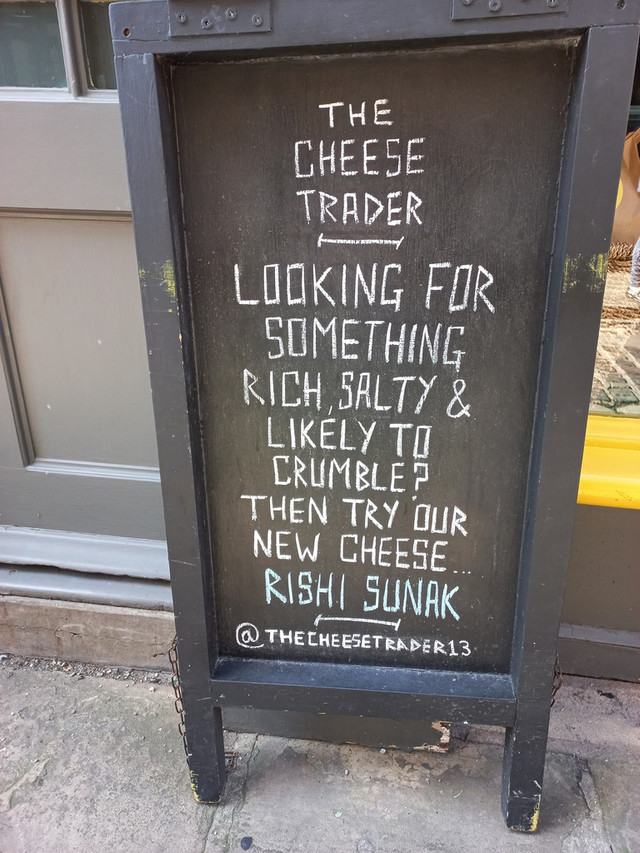 THE
CHEESE
TRADER
LOOKING FOR
SOMETHING
RICH, SALTY &
LIKELY TO
CRUMBLE?
THEN TRY OUR
NEW CHEESE...
RISHI SUNAK
@THECHEESETRADER13